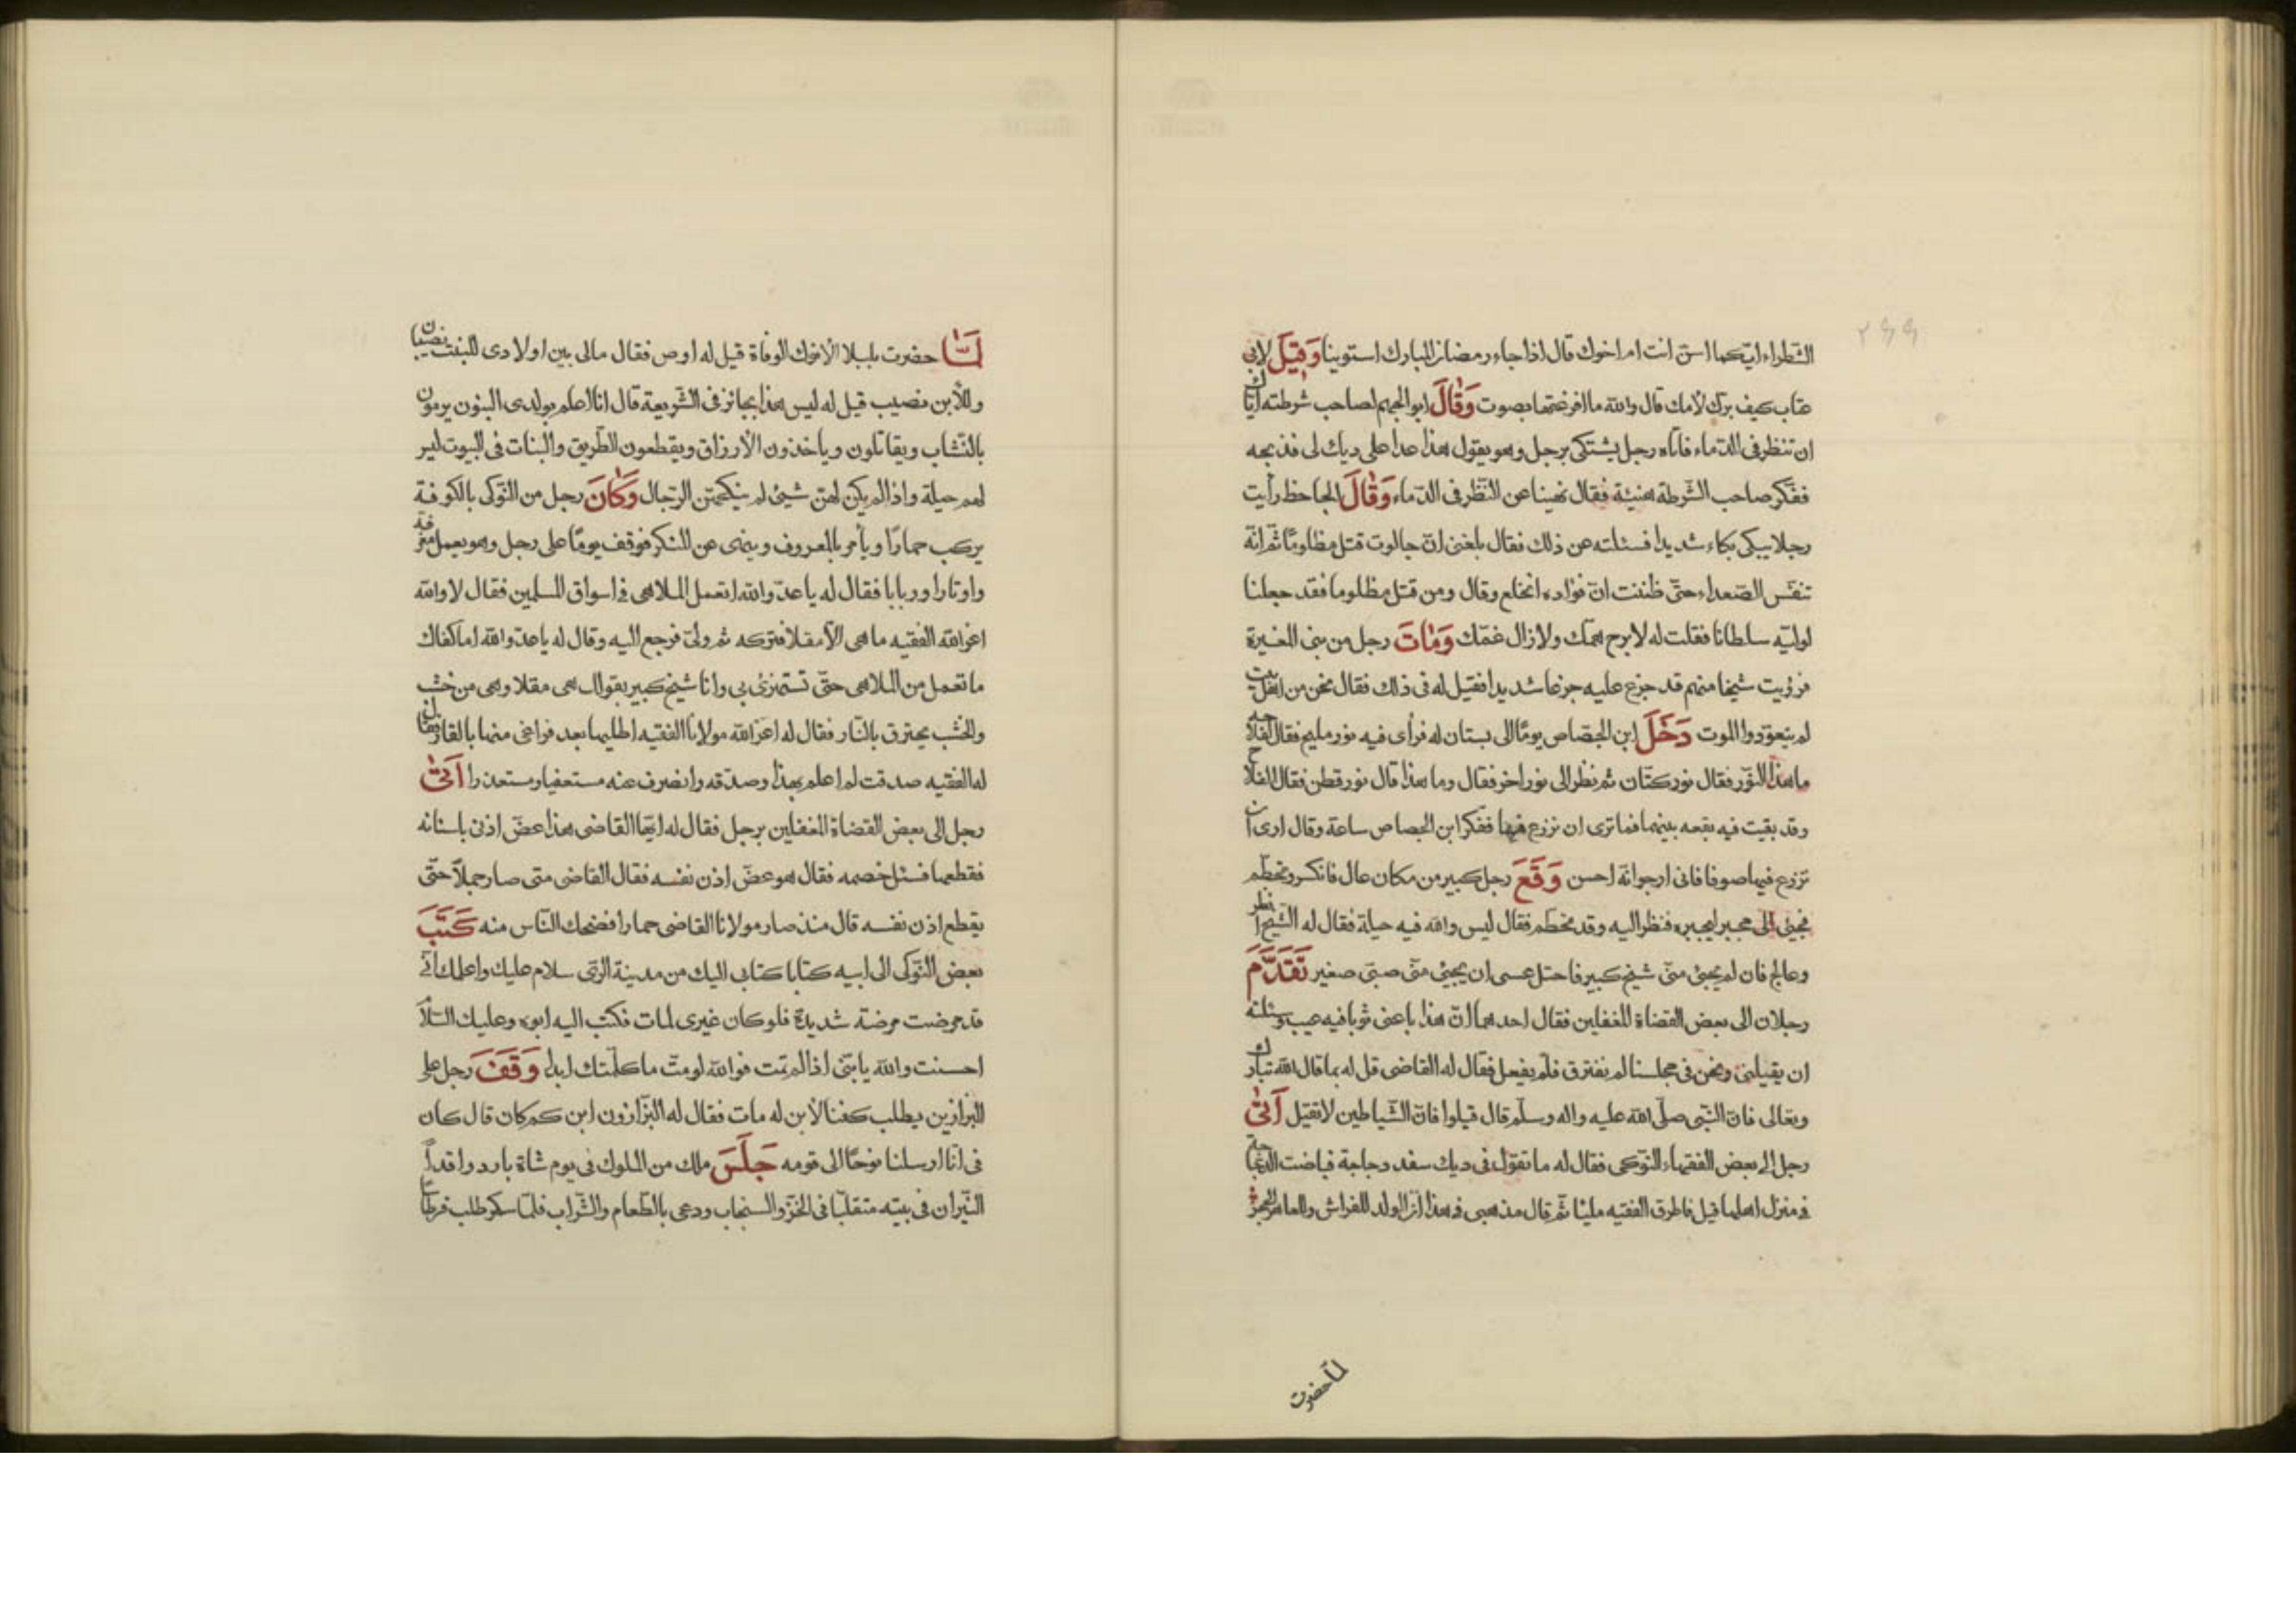 الشطراء ايكما اسن انت ام اخوك قال اذا جاء رمضان المبارك استوينا وَقيلَ لابى
عتاب كيف برك لامك قال والله ما اقرعتها بصوت وَقالَ ابو الجهم لصاحب شرطته اياك
ان تنظر فى الدماء فاتاه رجل يشتكى برجل وهو يقول هذا عدا على ديك لى فذبحه
ففكر صاحب الشرطة هنيئة فقال نهينا عن النظر فى الدماء وَقالَ الجاحظ رأيت
رجلا يبكى بكاء شديدا فسئلته عن ذلك فقال بلغنى ان جالوت قتل مظلومًا ثم انه
تنفس الصعداء حتى ظننت ان فؤاده انخلع وقال ومن قتل مظلوما فقد جعلنا
لوليه سلطانا فقلت له لا برح همك ولا زال غمك وَماتَ رجل من بنى المغيرة
فرؤيت شيخا منهم قد جزع عليه جزعا شديدا فقيل له فى ذلك فقال نحن من اهل بيت
لم يتعودوا الموت دَخَلَ ابن الجصاص يومًا الى بستان له فرأى فيه نور مليح فقال لفلاحه
ما هذا النور فقال نور كتان ثم نظر الى نور اخر فقال وما هذا قال نور قطن فقال الفلاح
وقد بقيت فيه بقعه بينهما فما ترى ان نزرع فيها ففكر ابن الجصاص ساعة وقال ارى ان
تزرع فيها صوفا فانى ارجو انه احسن وَقَعَ رجل كبير من مكان عال فانكسر وتحطم
فجيئ الى مجبر ليجبره فنظر اليه وقد تحطم فقال ليس والله فيه حيلة فقال له الشيخ انظر
وعالج فان لم يجئ منى شيخ كبير فاحتل عسى ان يجيئ منى صبى صغير تَقَدَّمَ
رجلان الى بعض القضاة المغفلين فقال احدهما ان هذا باعنى ثوبا فيه عيب وسئلته
ان يقيلنى ونحن فى مجلسنا لم نفترق فلم يفعل فقال له القاضى قل له بما قال الله تبارك
وتعالى فان النبى صلى الله عليه واله وسلم قال قيلوا فان الشياطين لا تقيل اَتى
رجل الى بعض الفقهاء النوكى فقال له ما تقول فى ديك سفد دجاجة فباضت الدجاجة
فى منزل اهلها قيل فاطرق الفقيه مليًا ثم قال مذهبى فى هذا ان الولد للفراش وللعاهر الحجر
لما حضرت
لَمّا حضرت بلبلا الافوك الوفاة قيل له اوص فقال مالى بين اولادى للبنت نصيبان
وللابن نصيب قيل له ليس هذا بجائز فى الشريعة قال انا اعلم بولدى البنون يرمون
بالنشاب ويقاتلون وياخذون الارزاق ويقطعون الطريق والبنات فى البيوت ليس
لهم حيلة واذا لم يكن لهن شيئ لم ينكحهن الرجال وَكانَ رجل من النوكى بالكوفة
يركب حمارًا ويأمر بالمعروف وينهى عن المنكر فوقف يومًا على رجل وهو يعمل مغرفة
واوتارا وربابا فقال له يا عدو الله اتعمل الملاهى فى اسواق المسلمين فقال لا والله
اعز الله الفقيه ما هى الا مقلا فتركه ثم ولى فرجع اليه وقال له يا عدو الله اما كفاك
ما تعمل من الملاهى حتى تستهزئ بى وانا شيخ كبير بقولك هى مقلا وهى من خشب
والخشب يحترق بالنار فقال له اعز الله مولانا الفقيه اطليها بعد فراغى منها بالقار فقال
له الفقيه صدقت لم اعلم بهذا وصدقه وانصرف عنه مستعفيا ومستعذرا اَتى
رجل الى بعض القضاة المغفلين برجل فقال له ايها القاضى هذا عض اذنى باسنانه
فقطعها فسئل خصمه فقال هو عض اذن نفسه فقال القاضى متى صار جملًا حتى
يقطع اذن نفسه قال منذ صار مولانا القاضى حمارا فضحك الناس منه كَتَبَ
بعض النوكى الى ابيه كتابا كتابى اليك من مدينة الرى سلام عليك واعلمك انى
قد مرضت مرضة شديدة فلو كان غيرى لمات فكتب اليه ابوه وعليك السلام
احسنت والله يا بنى اذا لم تمت فوالله لو مت ما كلمتك ابدا وَقَفَ رجل على
البزازين يطلب كفنا لابن له مات فقال له البزازون ابن كم كان قال كان
فى انا ارسلنا نوحًا الى قومه جَلَسَ ملك من الملوك فى يوم شاة بارد واقدا
النيران فى بيته متقلبًا فى الخز والسنجاب ودعى بالطعام والشراب فلما سكر طلب قرطاسا